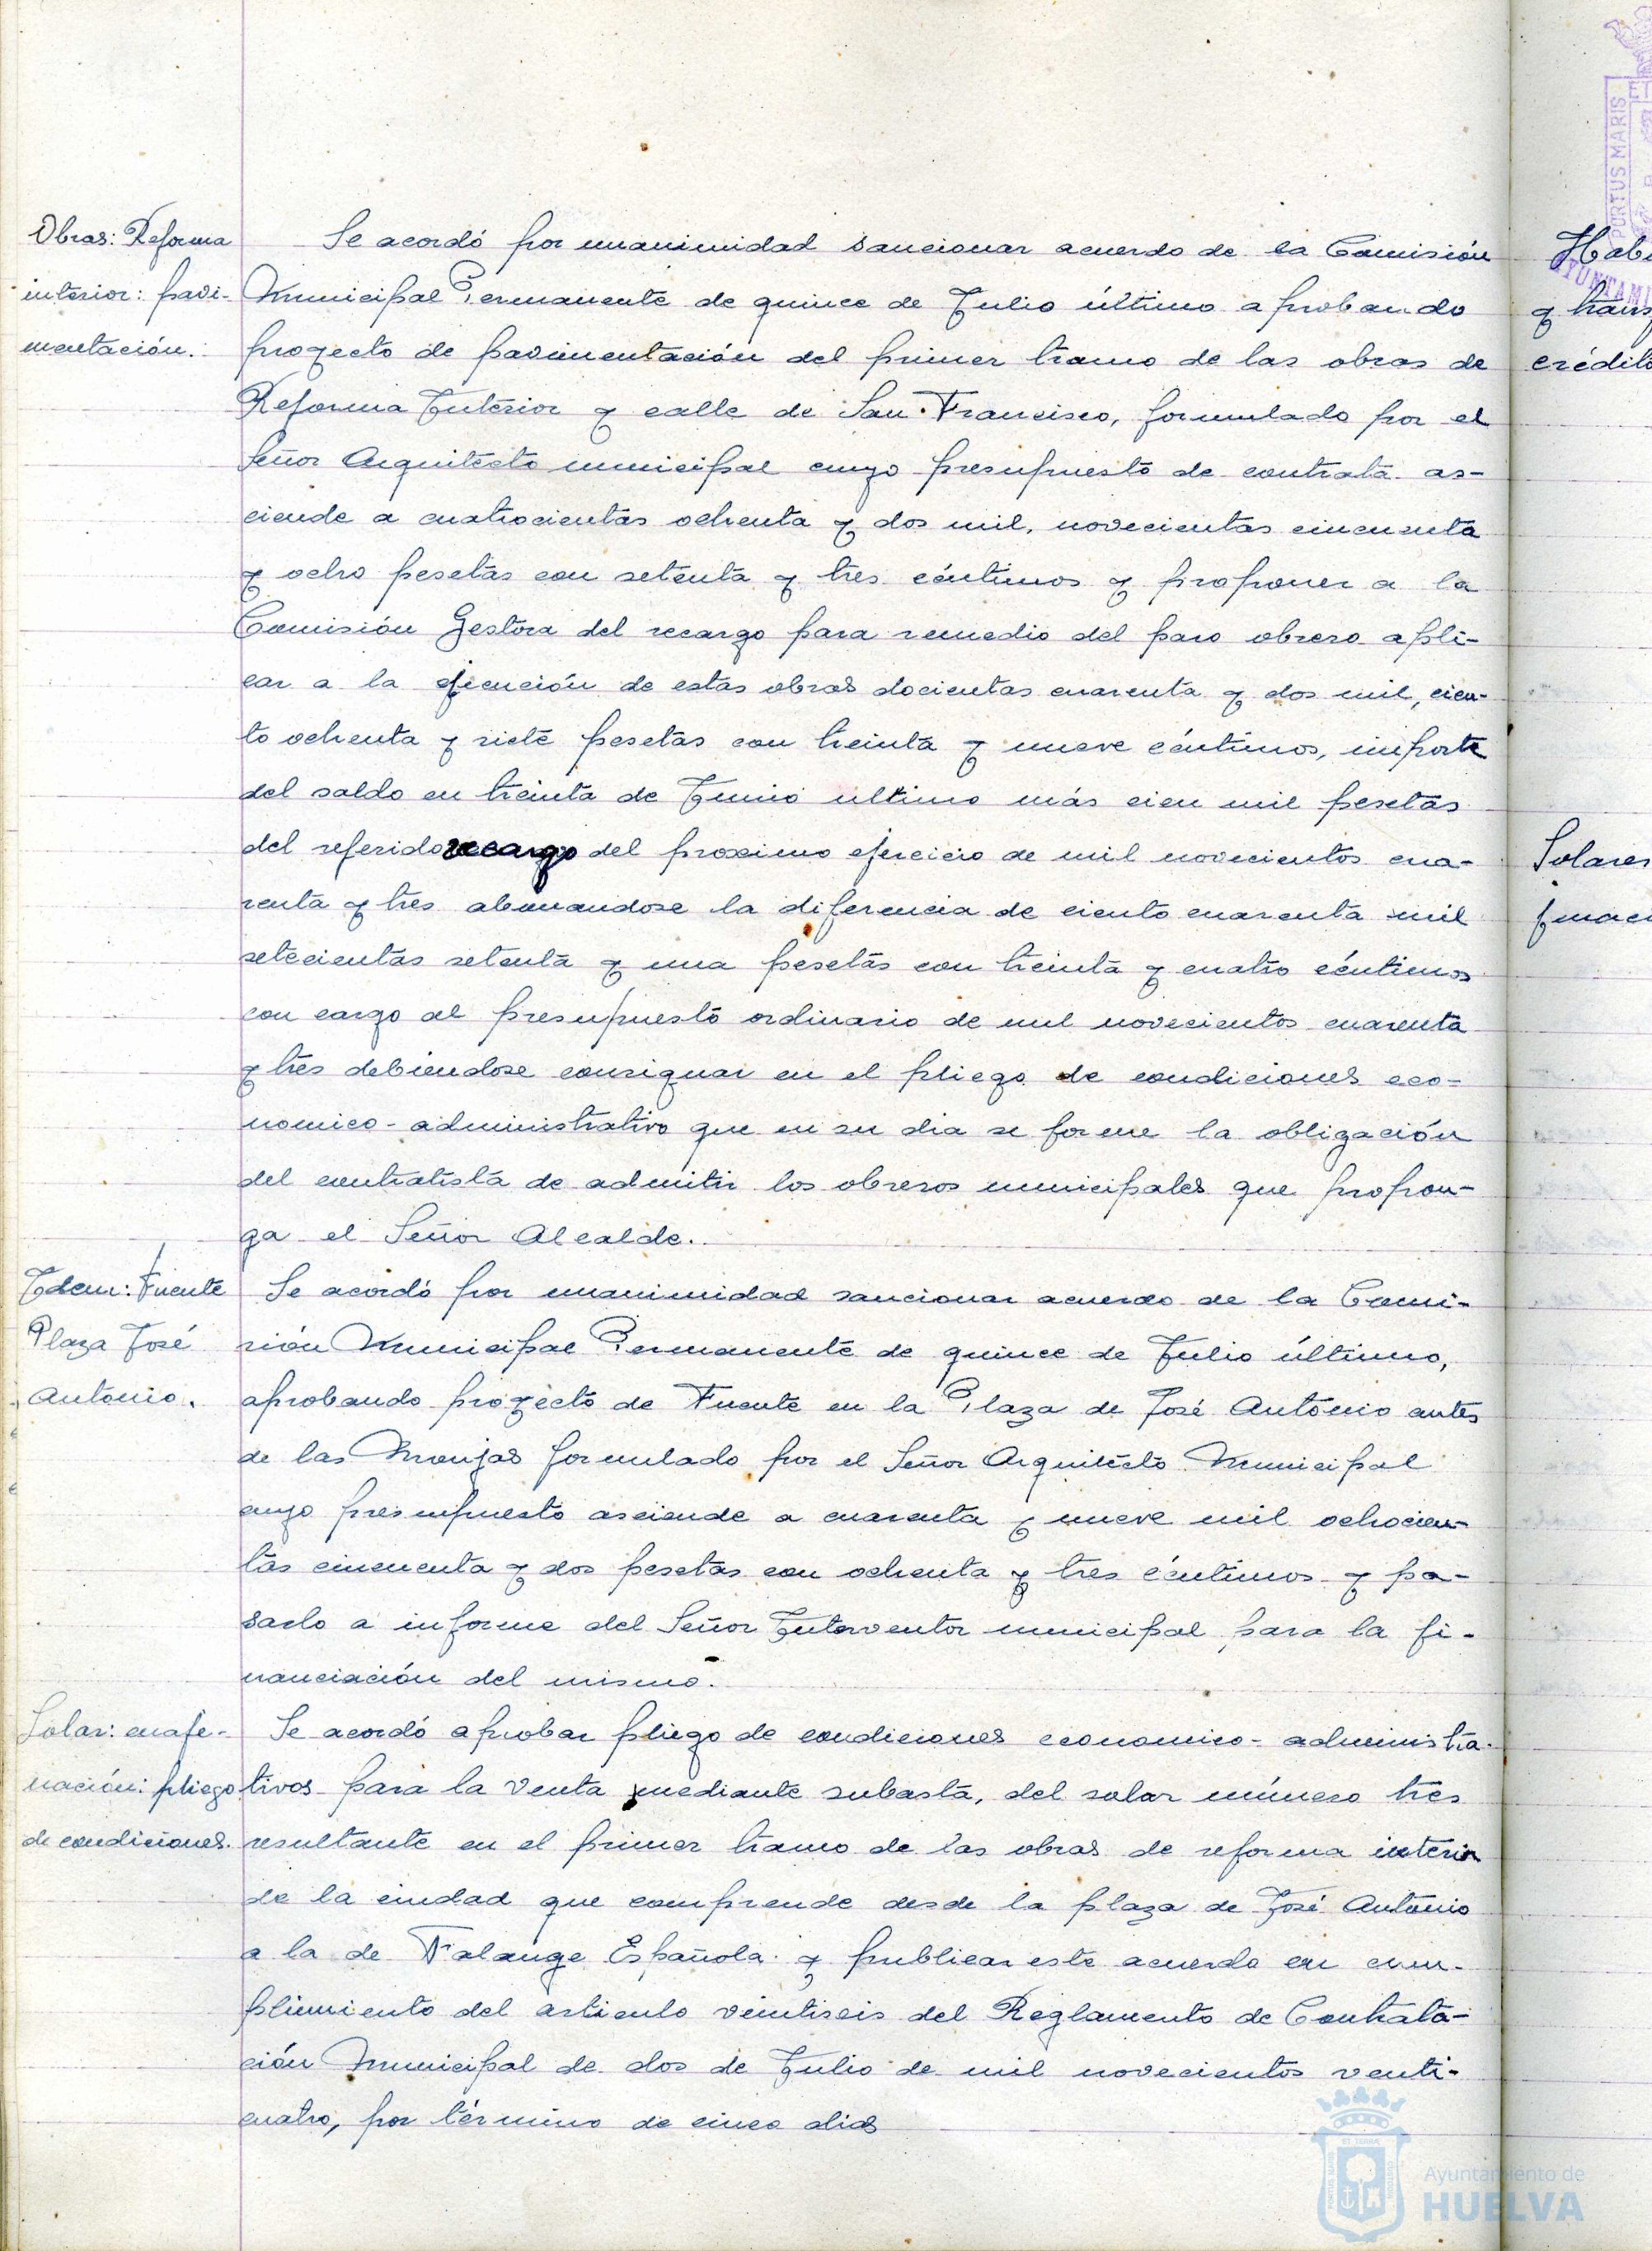 Obras: Reforma
interior: pavi-
mentación.
Se acordó por unanimidad sancionar acuerdo de la Comisión
Municipal Permanente de quince de Julio último aprobando
proyecto de pavimentación del primer tramo de las obras de
Reforma Interior y calle de San Francisco, formulado por el
Señor Arquitecto municipal cuyo presupuesto de contrata as-
ciende a cuatrocientas ochenta y dos mil, novecientas cincuenta
y ocho pesetas con setenta y tres céntimos y proponer a la
Comisión Gestora del recargo para remedio del paro obrero apli-
car a la ejecución de estas obras docientas cuarenta y dos mil, cien-
to ochenta y siete pesetas con treinta y nueve céntimos, importe
del saldo en treinta de Junio ultimo más cien mil pesetas
del referido recargo del proximo ejercicio de mil novecientos cua-
renta y tres abonandose la diferencia de ciento cuarenta mil
setecientas setenta y una pesetas con treinta y cuatro céntimos
con cargo al presupuesto ordinario de mil novecientos cuarenta
y tres debiendose consignar en el pliego de condiciones eco-
nomico-administrativo que en su dia se forme la obligación
del contratista de admitir los obreros municipales que propon-
ga el Señor Alcalde.
Idem: Fuente
Plaza José
Antonio.
Se acordó por unanimidad sancionar acuerdo de la Comi-
sión Municipal Permanente de quince de Julio último,
aprobando proyecto de Fuente en la Plaza de José Antonio antes
de las Monjas formulado por el Señor Arquitecto Municipal
cuyo presupuesto asciende a cuarenta y nueve mil ochocien-
tas cincuenta y dos pesetas con ochenta y tres céntimos y pa-
sarlo a informe del Señor Interventor municipal para la fi-
nanciación del mismo.
Solar: enaje-
nación: pliego
de condiciones.
Se acordó aprobar pliego de condiciones economico-administra-
tivos para la venta mediante subasta, del solar número tres
resultante en el primer tramo de las obras de reforma interior
de la ciudad que comprende desde la plaza de José Antonio
a la de Falange Española y publicar este acuerdo en cum-
plimiento del articulo veintiseis del Reglamento de Contrata-
ción Municipal de dos de Julio de mil novecientos venti-
cuatro, por término de cinco dias
PORTUS MARIS
AYUNTAMI
y trans
crédito
Solares
Ayuntamiento de
HUELVA